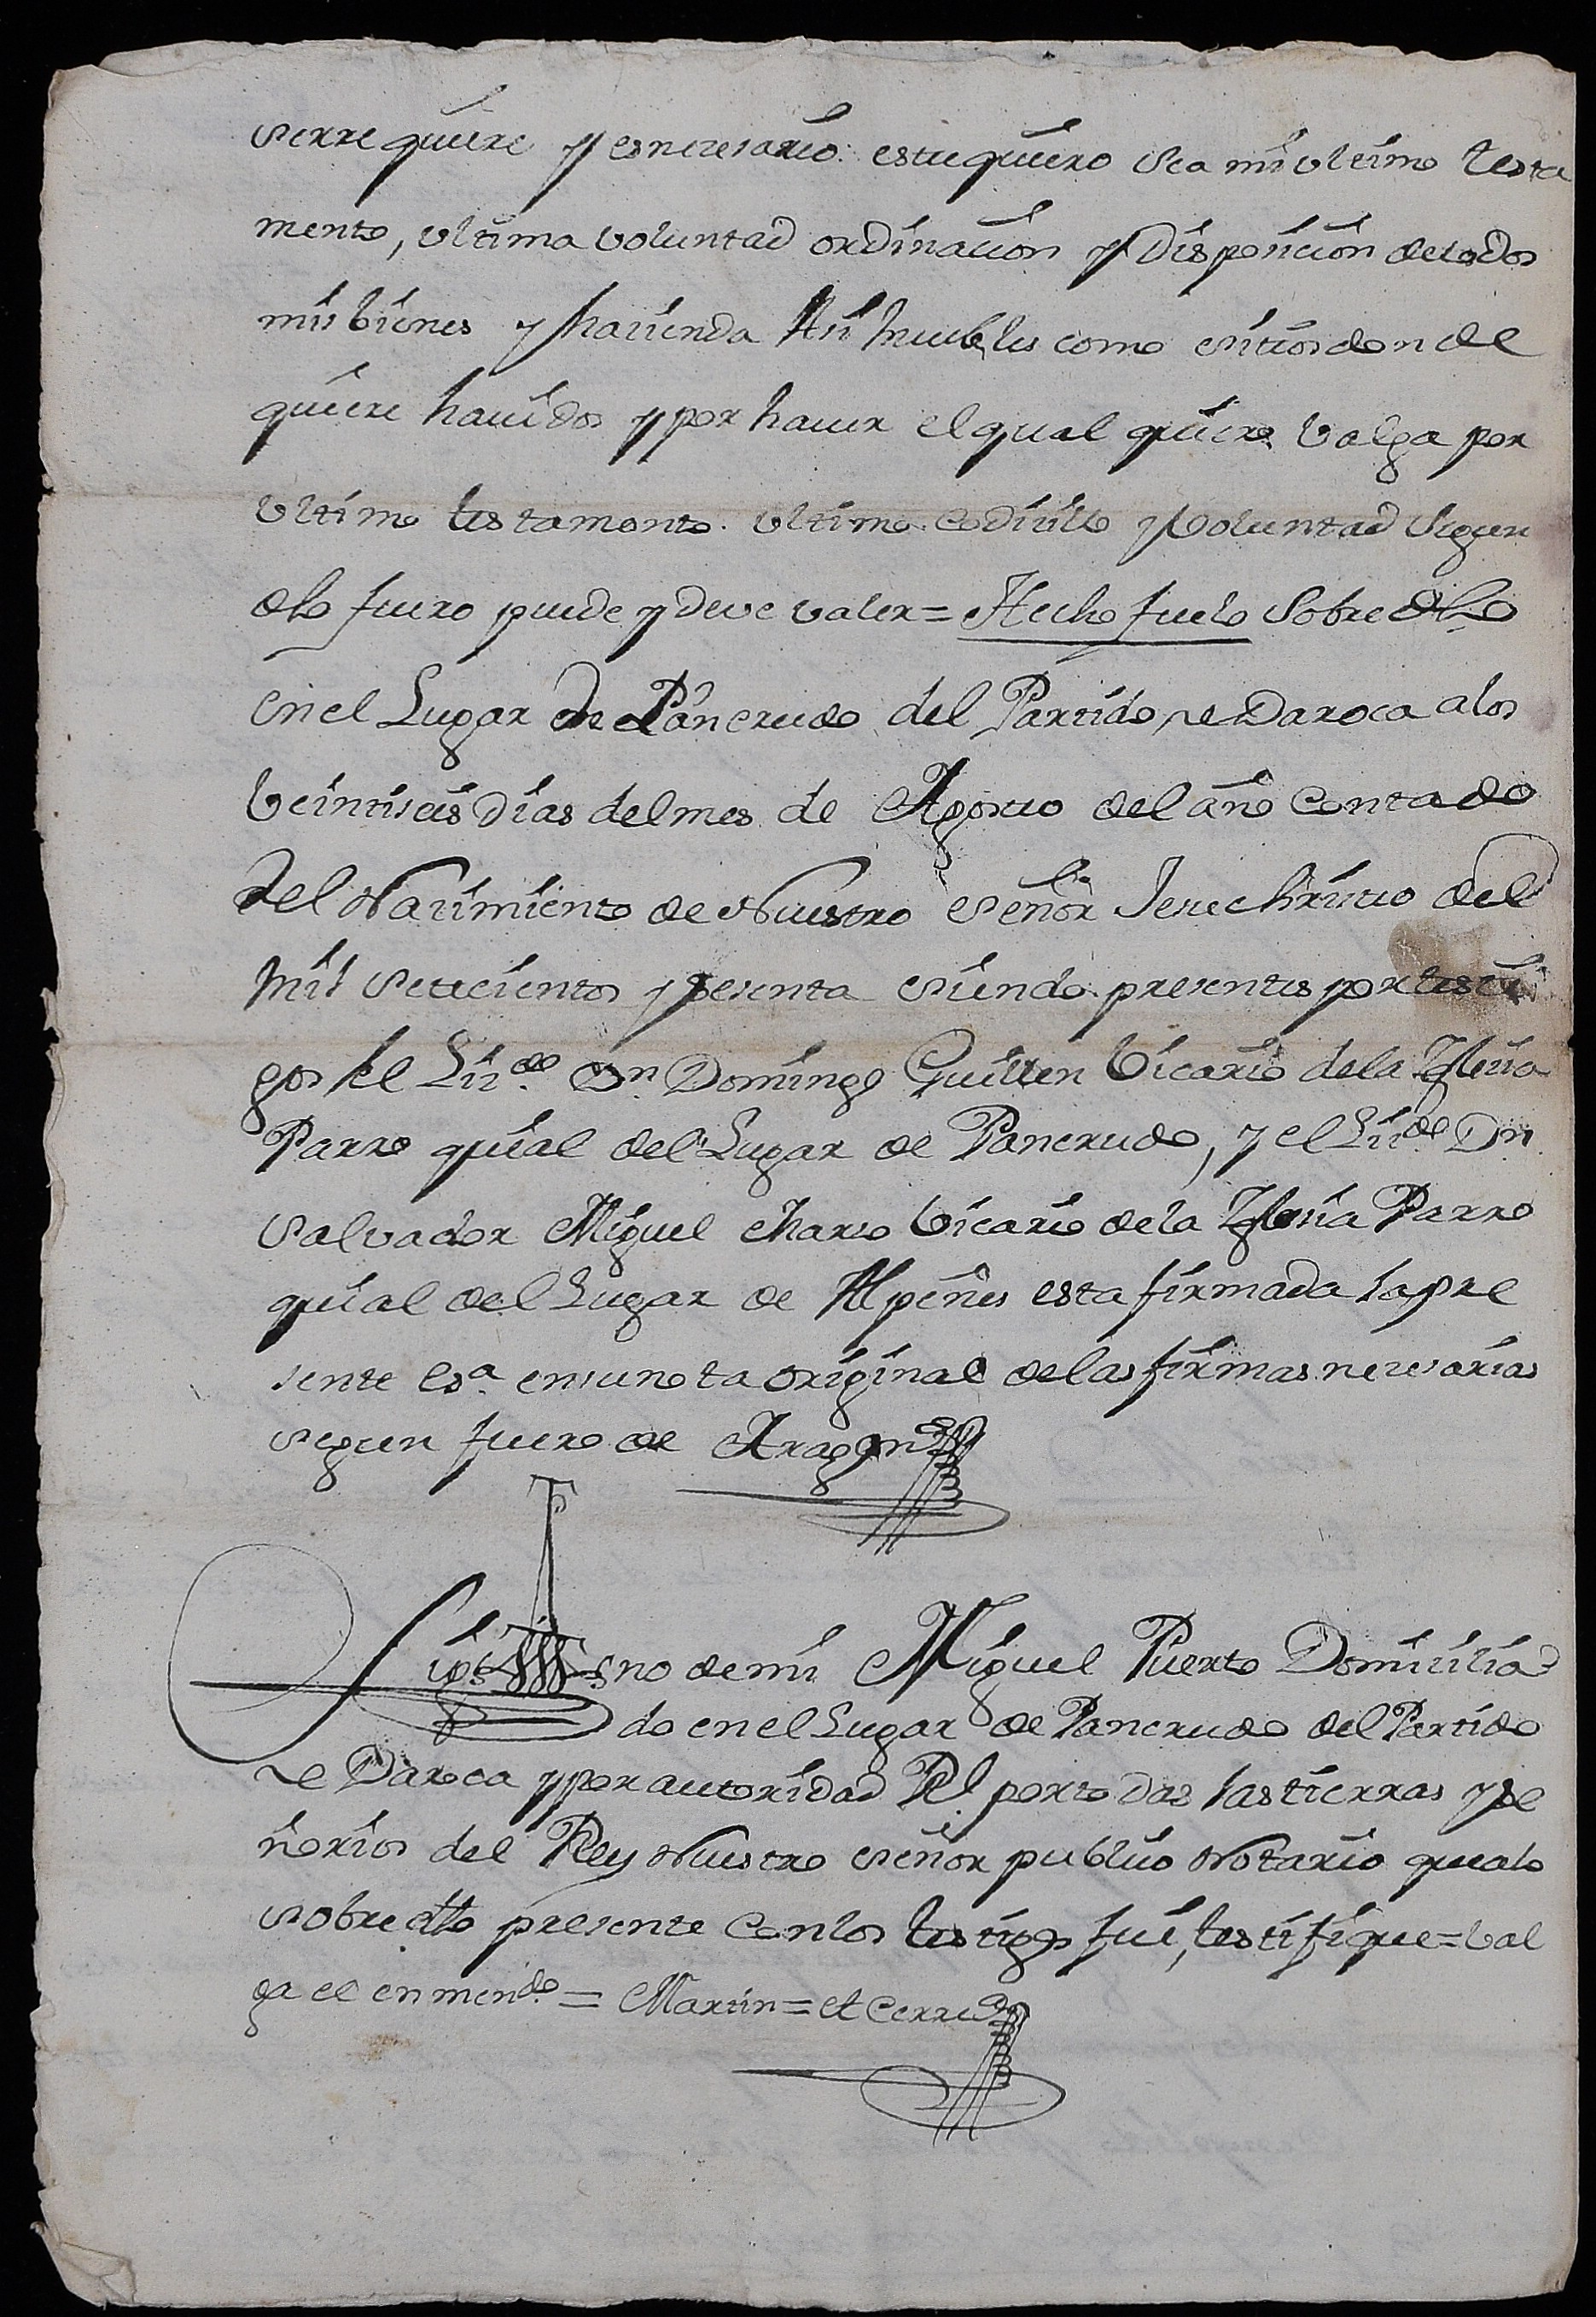 serrequiere y es necesario. este quiero sea mi ultimo testa
mento, ultima voluntad ordinacion y disposicion de todos
mis bienes y hacienda Asi Muebles como sitios donde
quiere havidos y por haver el qual quiero valga por
ultimo testamento. ultimo codicillo y voluntad segun
dho fuero puede y deve valer = Hecho fue lo sobre dho
en el Lugar de Pancrudo del Partido de Daroca a los
veintiseis dias del mes de Agosto del año contado
del Nacimiento de Nuestro Señor Jesuchristo del
mil setecientos y sesenta siendo presentes por testi
gos el Licdo. Dn. Domingo Guillen vicario de la Iglesia
Parroquial del Lugar de Pancrudo, y el Licdo. Dn.
Salvador Miguel Marco vicario de la Iglesia Parro
quial del Lugar de Alpeñes esta firmada la pre
sente esa. en su nota original de las firmas necesarias
segun fuero de Aragon
Sig no de mi Miguel Puerto Domicilia
do en el Lugar de Pancrudo del Partido
de Daroca y por autoridad Rl. por todas las tierras y se
ñorios del Rey Nuestro Señor publico Notario que a lo
sobre dho presente con los testigos fui, testifique = val
ga el enmendo. = Martin = et cerre